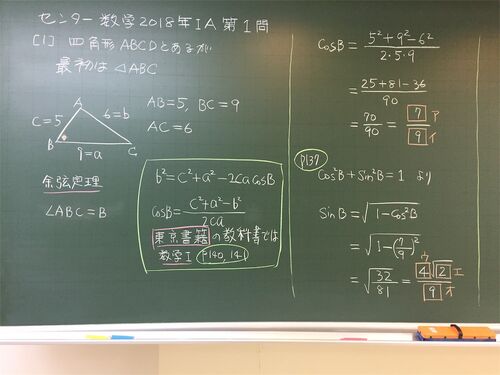 センター数学2018年IA第1問
[1] 四角形ABCDとあるが
最初は△ABC
A
C=5
6=b
B
9=a
C
AB=5, BC=9
AC=6
余弦定理
∠ABC=B
b²=C²+a²-2CaCosB
CosB=(C²+a²-b²)/2Ca
東京書籍の教科書では
数学I P140,141
CosB=(5²+9²-6²)/2・5・9
=(25+81-36)/90
=70/90=7/9 ア イ
P137
Cos²B+Sin²B=1 より
SinB=√(1-Cos²B)
=√(1-(7/9)²)
=√(32/81)=4√2/9 ウ エ オ